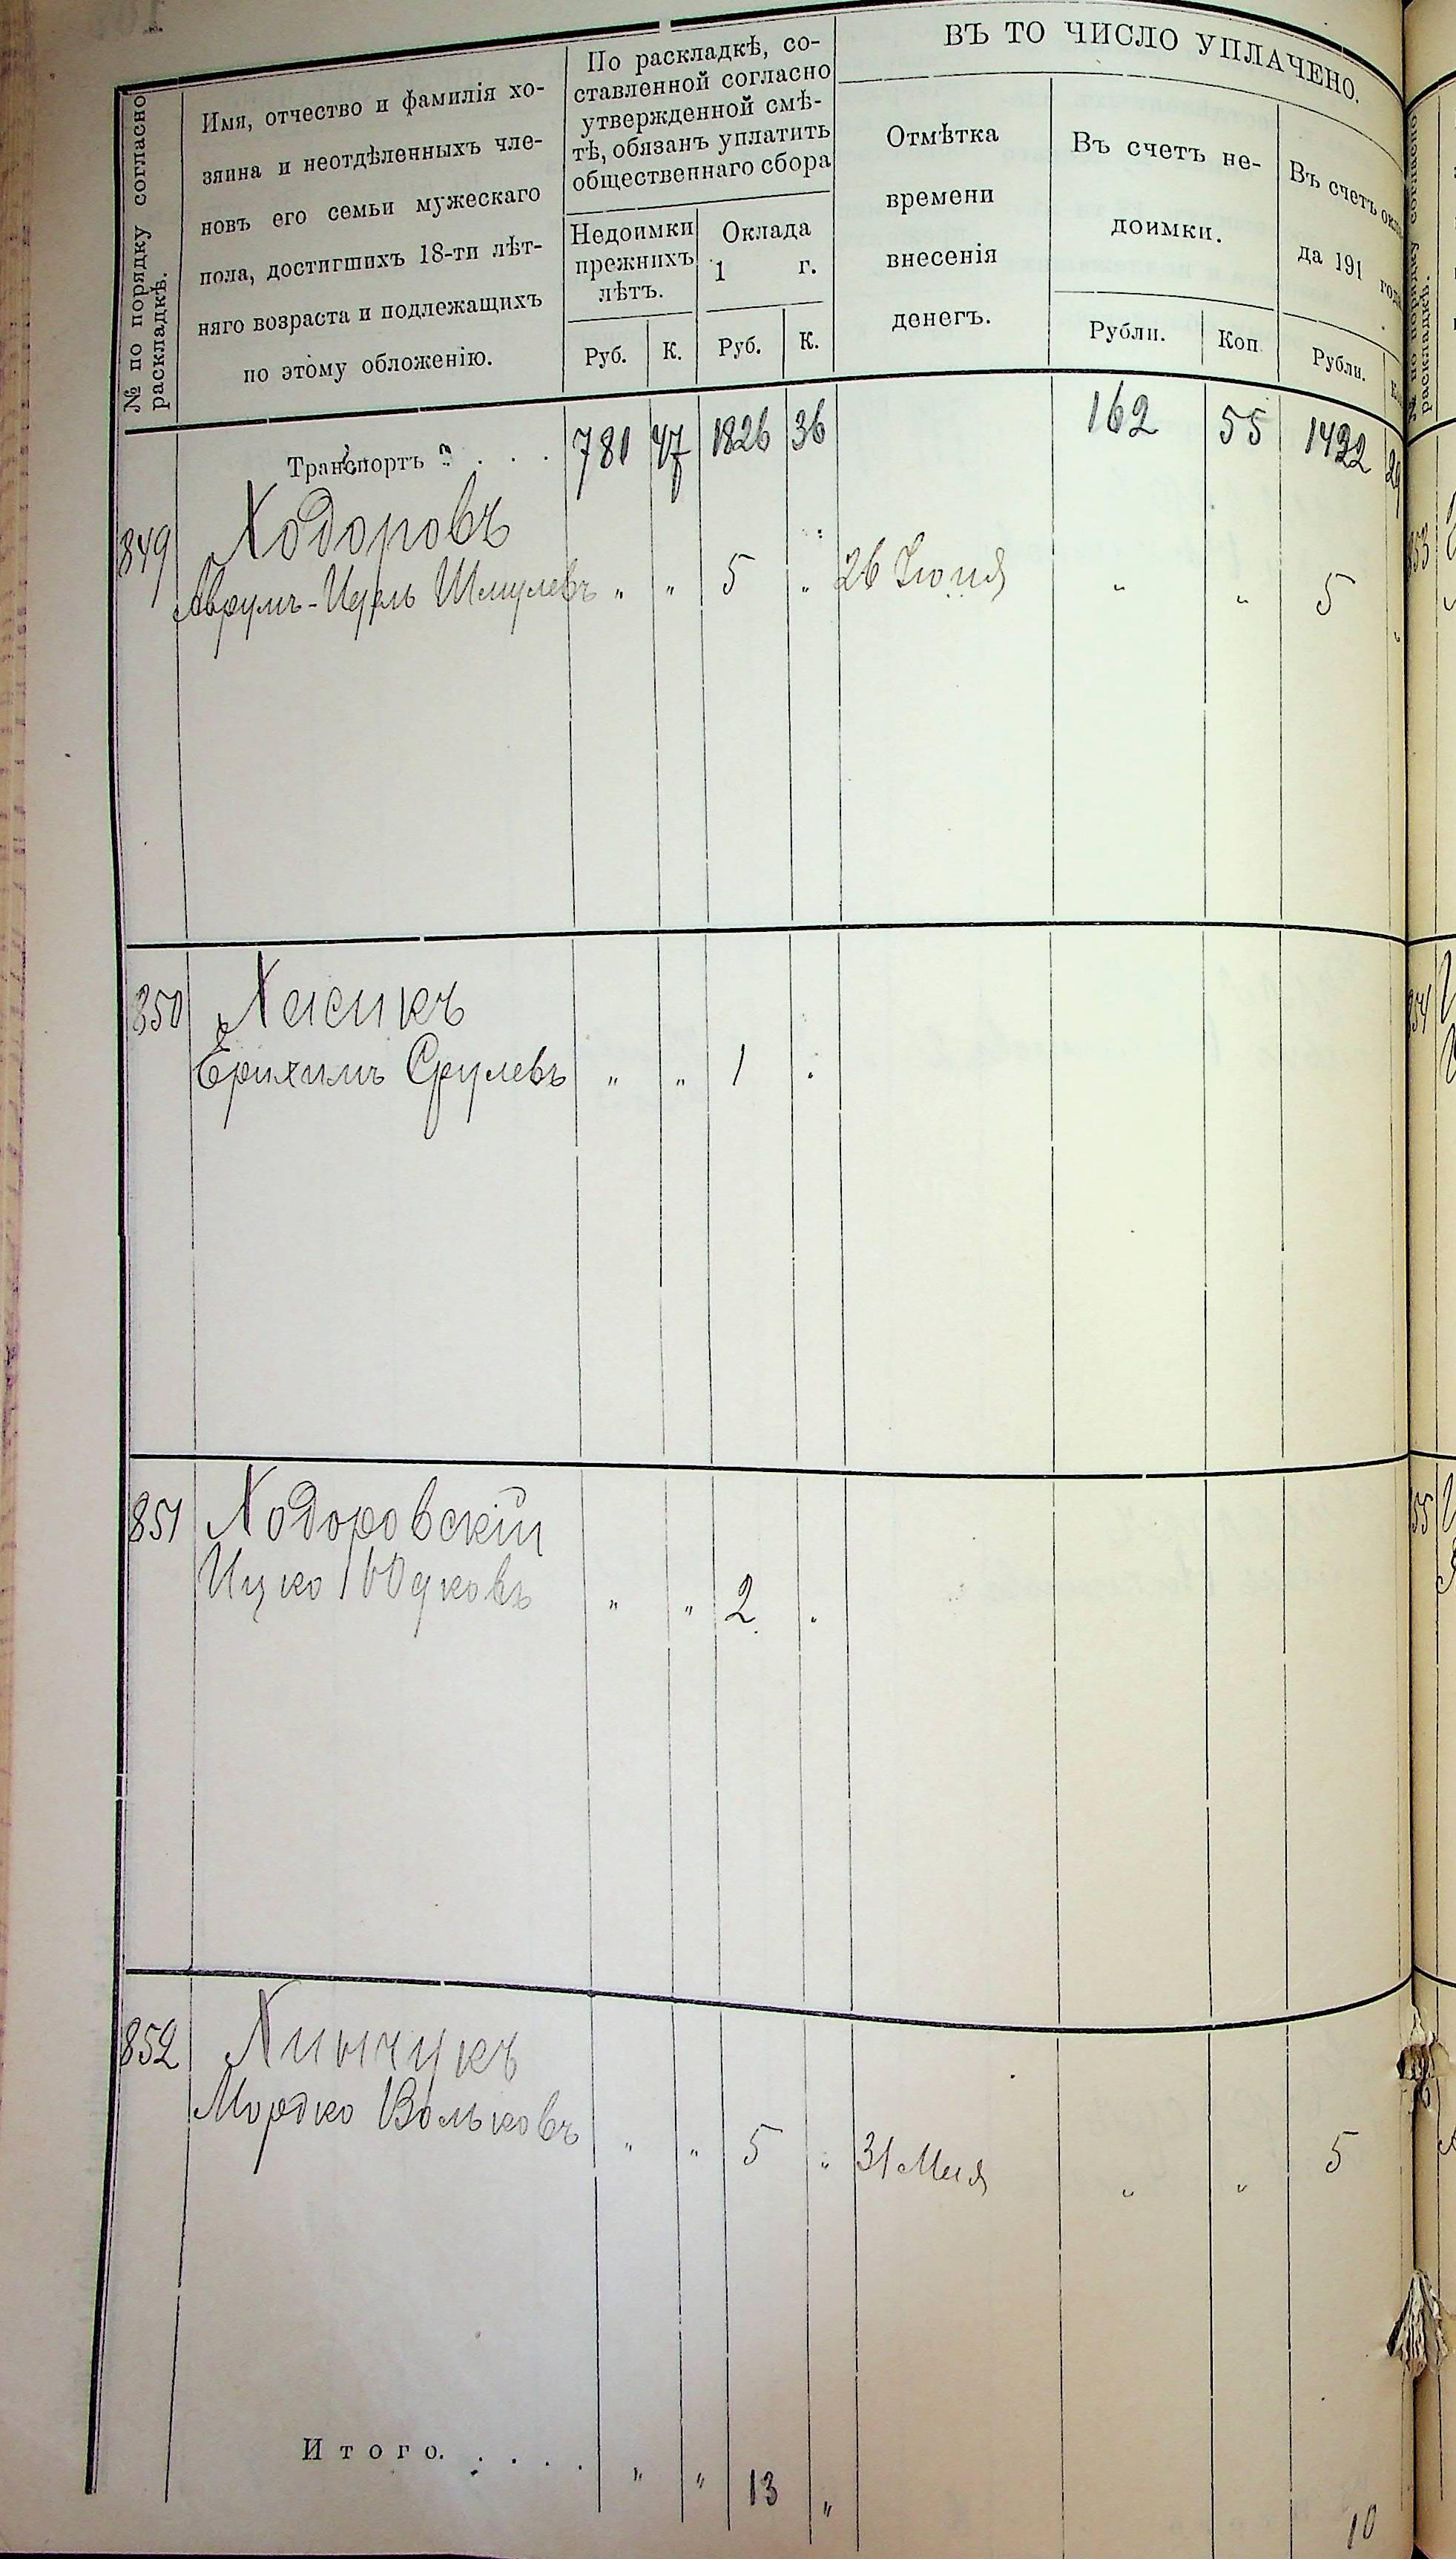 ВЪ ТО ЧИСЛО УПЛАЧЕНО.
№ по порядку согласно
раскладкѣ.
Имя, отчество и фамилія хо-
зяина и неотдѣленныхъ чле-
новъ его семьи мужескаго
пола, достигшихъ 18-ти лѣт-
няго возраста и подлежащихъ
по этому обложенію.
По раскладкѣ, со-
ставленной согласно
утвержденной смѣ-
тѣ, обязанъ уплатить
общественнаго сбора
Недоимки
прежнихъ
лѣтъ.
Оклада
1 г.
Руб. К. Руб. К.
Отмѣтка
времени
внесенія
денегъ.
Въ счетъ не-
доимки.
Рубли. Коп.
Въ счетъ окла-
да 191 года
Рубли. К.
Транспортъ . . . 781 47 1826 36 162 55 1422
849 Ходоровъ
Аврумъ-Ицель Шмулевъ " " 5 " 26 Іюня " " 5 "
850 Хасикъ
Ерихимъ Срулевъ " " 1
851 Ходоровскій
Ицко Юдковъ " " 2
852 Хинчукъ
Мордко Вольковъ " " 5 " 31 Мая " " 5
Итого. . . . . " " 13 " 10